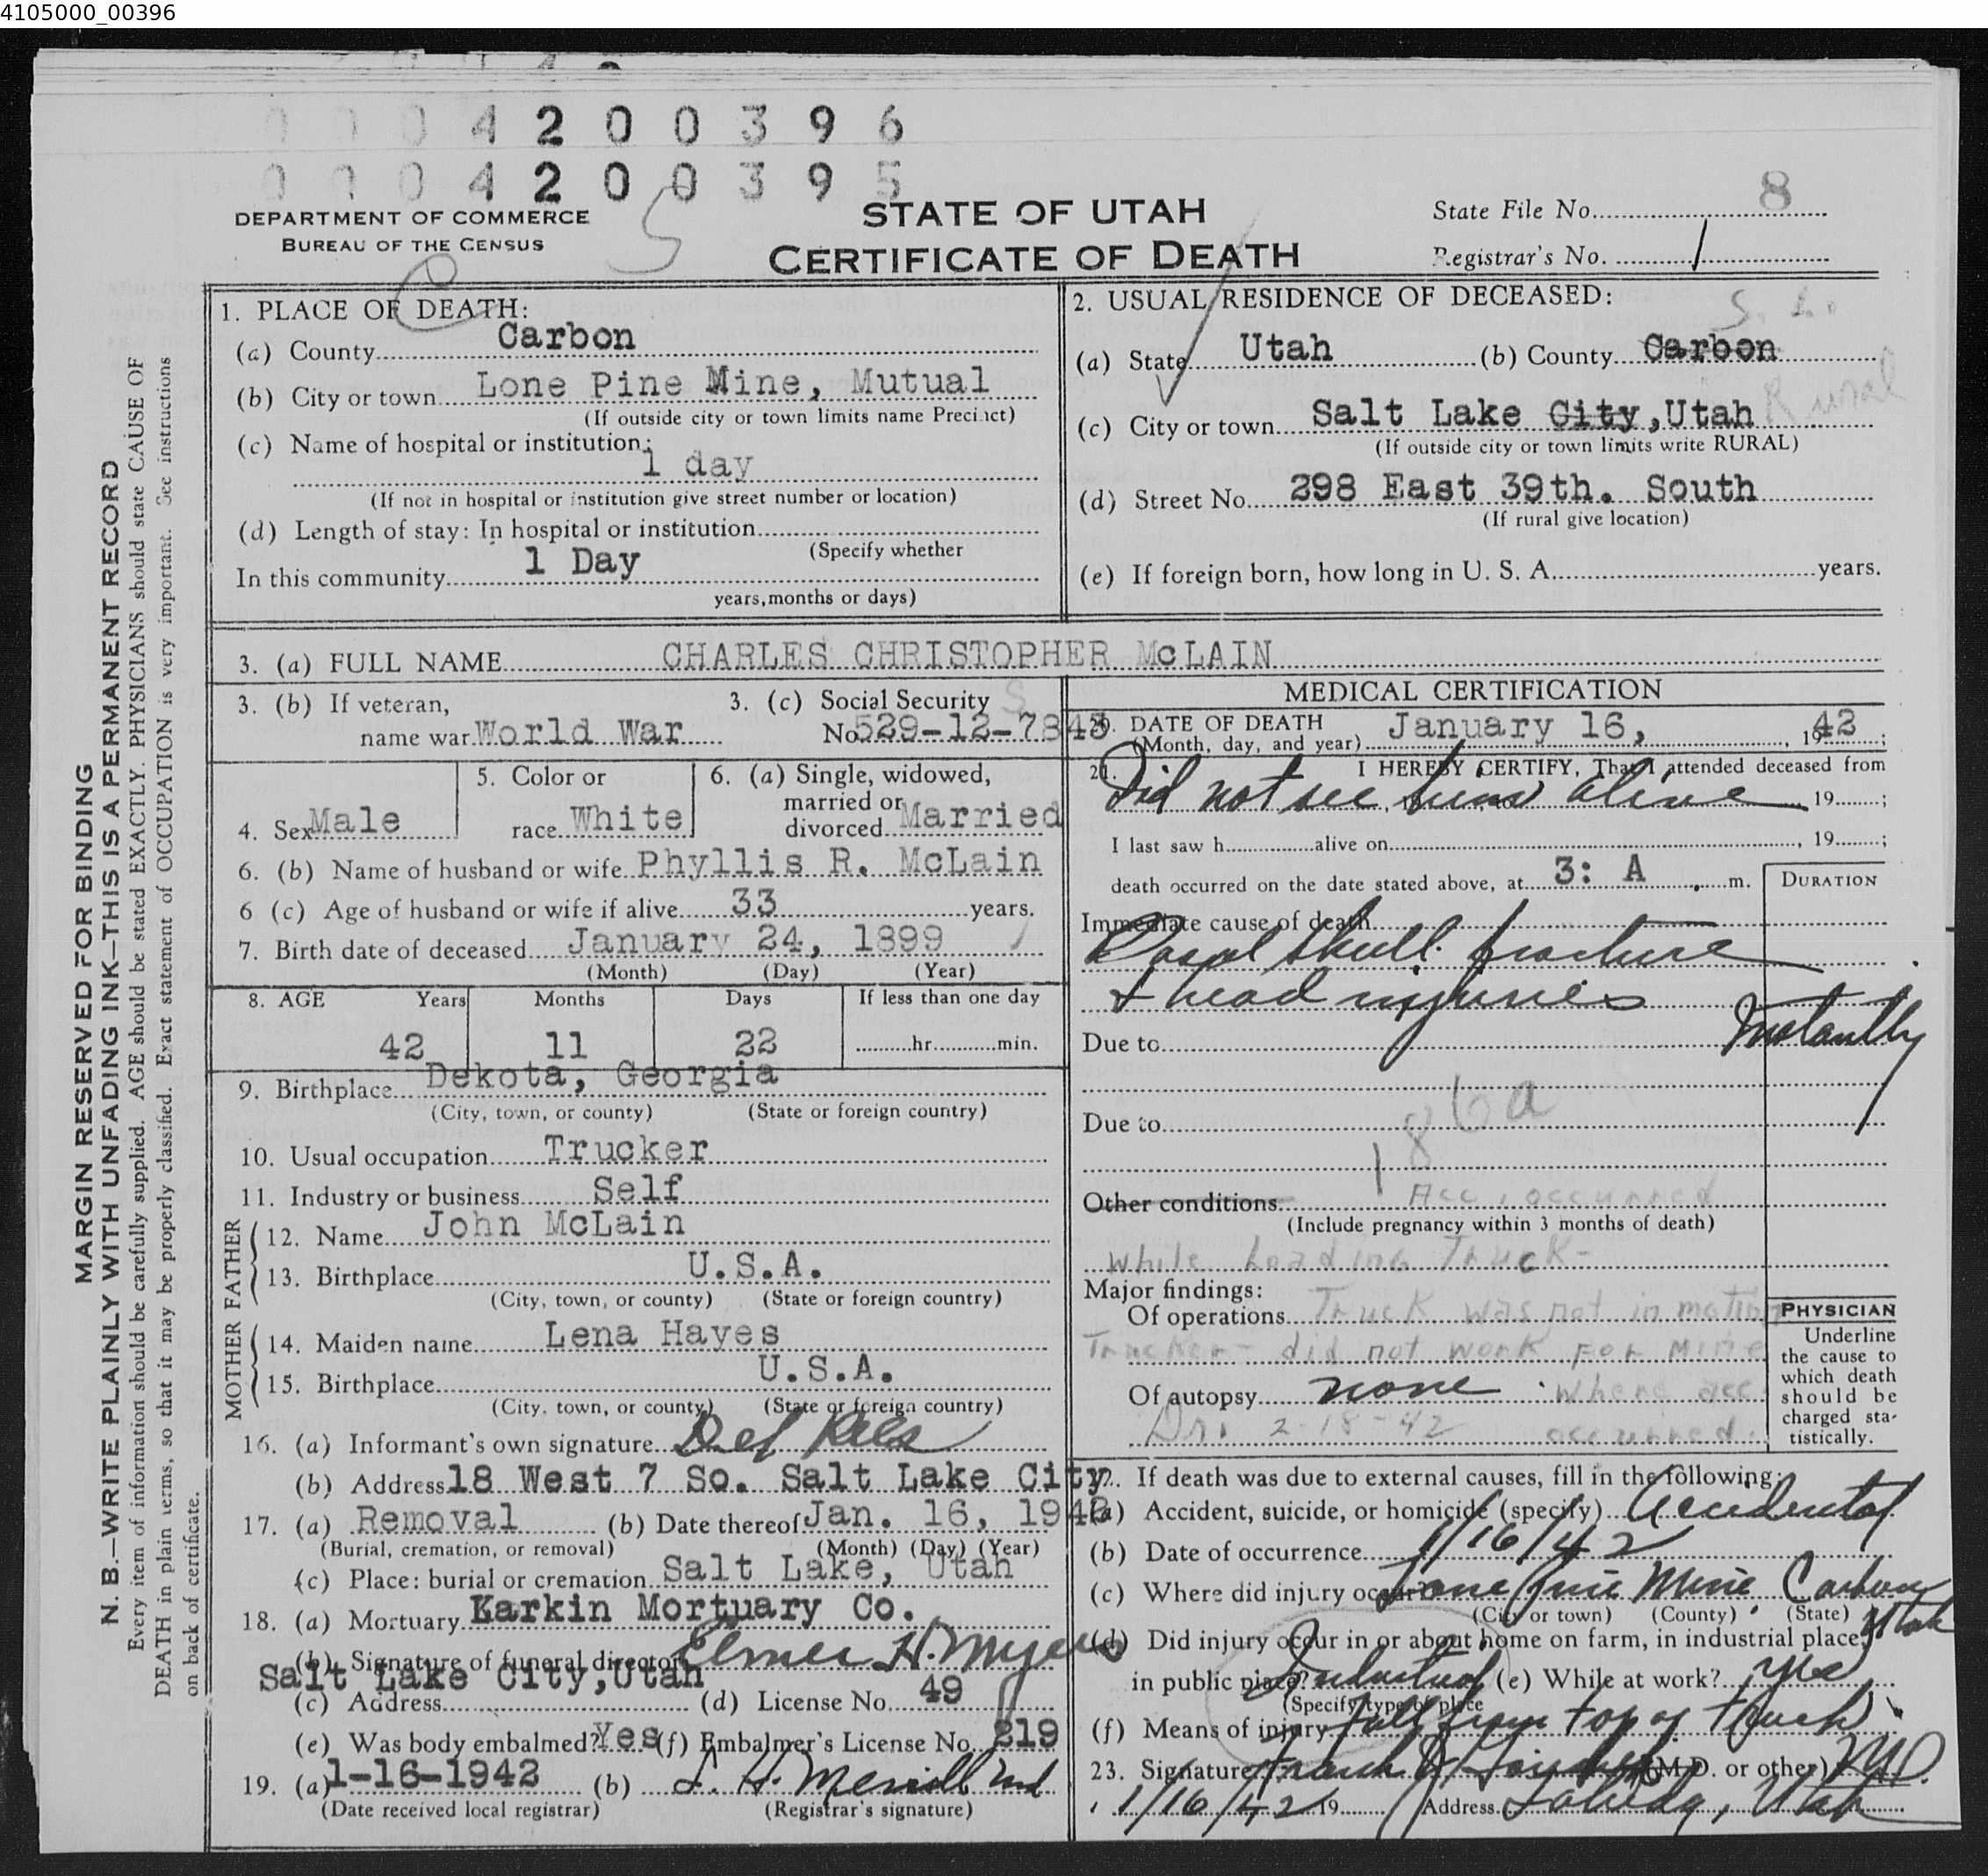 4105000_00396
0 0 0 4 2 0 0 3 9 6
0 0 0 4 2 0 0 3 9 5
DEPARTMENT OF COMMERCE
BUREAU OF THE CENSUS
STATE OF UTAH
CERTIFICATE OF DEATH
State File No. 8
Registrar's No. 1
MARGIN RESERVED FOR BINDING
N. B.—WRITE PLAINLY WITH UNFADING INK—THIS IS A PERMANENT RECORD
Every item of information should be carefully supplied. AGE should be stated EXACTLY. PHYSICIANS should state CAUSE OF
DEATH in plain terms, so that it may be properly classified. Exact statement of OCCUPATION is very important. See instructions
on back of certificate.
1. PLACE OF DEATH:
(a) County Carbon
(b) City or town Lone Pine Mine, Mutual
(If outside city or town limits name Precinct)
(c) Name of hospital or institution:
1 day
(If not in hospital or institution give street number or location)
(d) Length of stay: In hospital or institution
(Specify whether
In this community 1 Day
years, months or days)
2. USUAL RESIDENCE OF DECEASED:
S. L.
(a) State Utah (b) County Carbon
Rural
(c) City or town Salt Lake City, Utah
(If outside city or town limits write RURAL)
(d) Street No. 298 East 39th. South
(If rural give location)
(e) If foreign born, how long in U. S. A. years.
3. (a) FULL NAME CHARLES CHRISTOPHER McLAIN
3. (b) If veteran,
name war World War
3. (c) Social Security
No. 529-12-7843
4. Sex Male
5. Color or
race White
6. (a) Single, widowed,
married or
divorced Married
6. (b) Name of husband or wife Phyllis R. McLain
6 (c) Age of husband or wife if alive 33 years.
7. Birth date of deceased January 24, 1899
(Month) (Day) (Year)
8. AGE Years Months Days If less than one day
42 11 22 hr. min.
9. Birthplace Dekota, Georgia
(City, town, or county) (State or foreign country)
10. Usual occupation Trucker
11. Industry or business Self
FATHER
12. Name John McLain
13. Birthplace U.S.A.
(City, town, or county) (State or foreign country)
MOTHER
14. Maiden name Lena Hayes
15. Birthplace U.S.A.
(City, town, or county) (State or foreign country)
16. (a) Informant's own signature
(b) Address 18 West 7 So. Salt Lake City
17. (a) Removal (b) Date thereof Jan. 16, 1942
(Burial, cremation, or removal) (Month) (Day) (Year)
(c) Place: burial or cremation Salt Lake, Utah
18. (a) Mortuary Larkin Mortuary Co.
(b) Signature of funeral director Elmer H. Myers
Salt Lake City, Utah
(c) Address (d) License No. 49
(e) Was body embalmed? Yes (f) Embalmer's License No. 219
19. (a) 1-16-1942 (b) L. H. Merrill Md
(Date received local registrar) (Registrar's signature)
MEDICAL CERTIFICATION
20. DATE OF DEATH January 16, 1942;
(Month, day, and year)
21. I HEREBY CERTIFY, That I attended deceased from
Did not see him alive 19 ;
I last saw h alive on , 19 ;
death occurred on the date stated above, at 3: A m.
DURATION
Immediate cause of death
Basal skull fracture
& head injuries
Instantly
Due to
186a
Due to
Other conditions Acc. occurred
(Include pregnancy within 3 months of death)
while loading truck-
Major findings:
Of operations Truck was not in motion
Trucker- did not work for mine
Of autopsy none where acc
Dr. 2-18-42 occurred.
PHYSICIAN
Underline
the cause to
which death
should be
charged sta-
tistically.
22. If death was due to external causes, fill in the following:
(a) Accident, suicide, or homicide (specify) Accidental
(b) Date of occurrence 1/16/42
(c) Where did injury occur? Lone Pine Mine Carbon Utah
(City or town) (County) (State)
(d) Did injury occur in or about home on farm, in industrial place,
in public place? Industrial (e) While at work? yes
(Specify type of place
(f) Means of injury fall from top of truck
23. Signature Frank (M.D. or other) M.D.
1/16/42 19 Address Utah